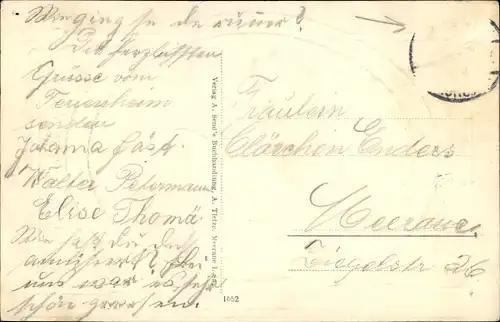 Wie ging es denn immer?
Die herzlichsten
Grüsse vom
Ferienheim
senden
Johanna
Walter Petermann
Elise Thomä
Wie hast du dich
amüsiert? Bei
uns war es sehr
schön gewesen.
Verlag A. Send's Buchhandlung, A. Tietze, Meerane i. Sa.
1652
Fräulein
Clärchen Enders
Meerane
Ziegelstr. 26